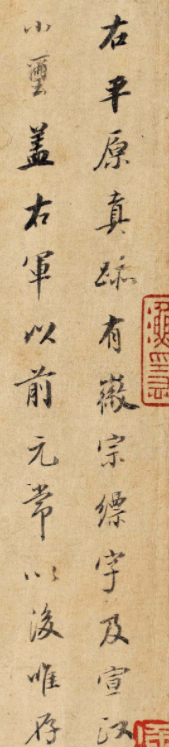 右平原真跡有徽宗縹字及宣政
小璽盖右軍以前元常以後唯存